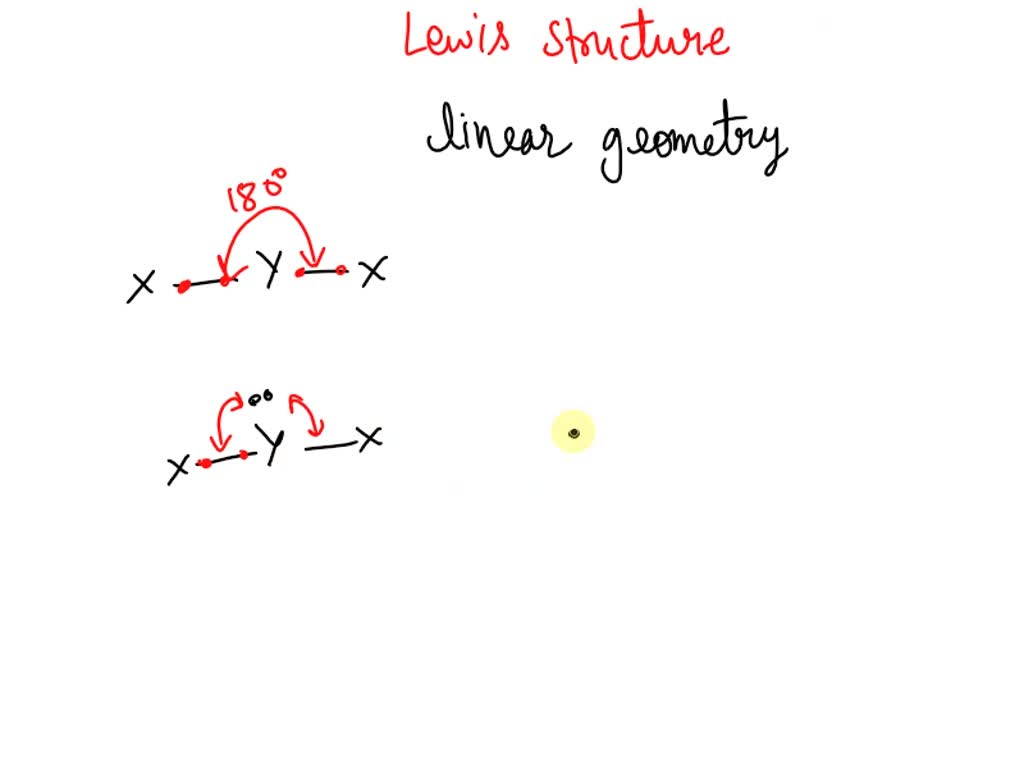 Lewis structure
linear geometry
180°
X — Y — X
X — Y — X